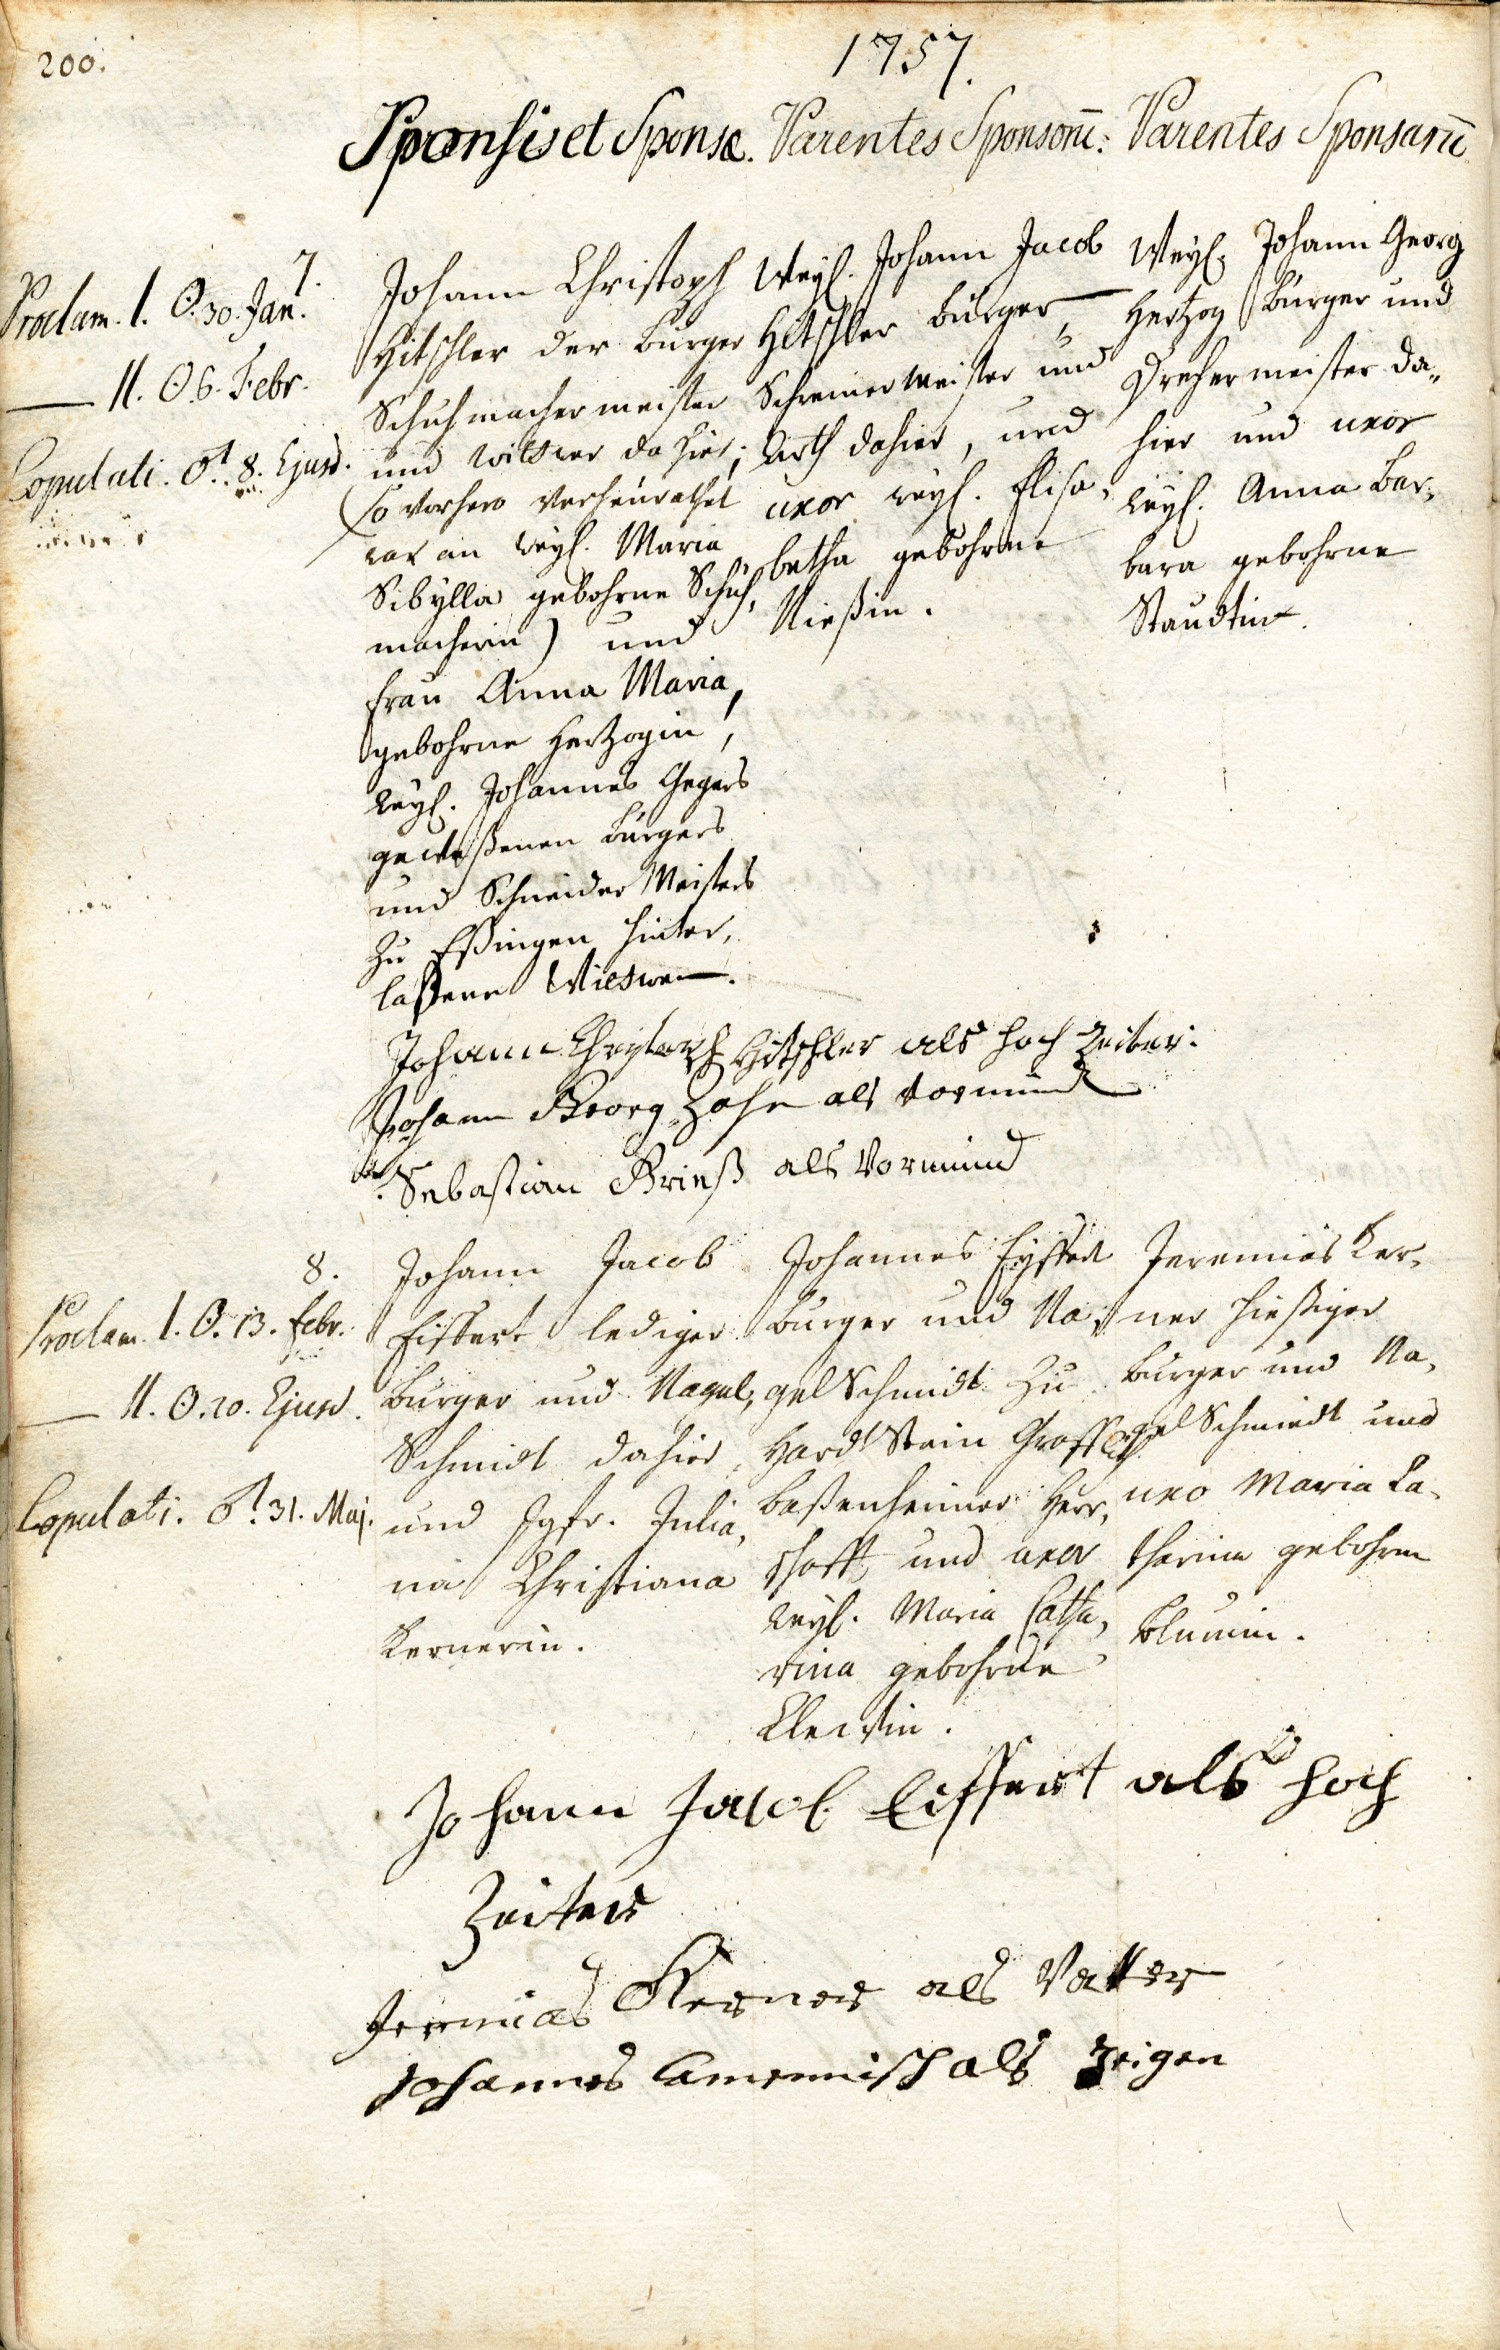 200.
1757.
Sponsi et Sponsæ. Parentes Sponsorū: Parentes Sponsarū
7.
Proclam. I. ʘ. 30. Jan.
— II. ʘ 6. Febr.
Copulati. ♂. 8. Ejusd.
Johann Christoph
Hitschler der Burger
Schuhmachermeister
und Wittwer dahier;
(so vorhero verheurathet
war an weyl. Maria
Sibylla gebohrne Schuh,
macherin) und
Frau Anna Maria,
gebohrne Hertzogin,
weyl. Johannes Gegers
geweßenen Burgers
und Schneider Meisters
zu Eßingen hinter,
laßene Wittwe.
Weyl. Johann Jacob
Hitschler Burger,
Schreiner Meister und
dahier, und
uxor weyl. Elisa,
betha gebohrne
Nießin.
Weyl. Johann Georg
Hertzog Burger und
Drehermeister da,,
hier und uxor
weyl. Anna Bar,
bara gebohrne
Staudtin.
Johann Hitschler als hoch Zeiter.
Johann Georg Hohn als vormund
Sebastian Grieß als Vormund
8.
Proclam. I. ʘ. 13. Febr.
— II. ʘ. 20. Ejusd.
Copulati. ♂. 31. Maj.
Johann Jacob
Eissert lediger
Burger und Nagel,
Schmidt dahier,
und Jgfr. Julia,
na Christiana
Kernerin.
Johannes Eyssert
Burger und Na,
gelSchmidt zu
Hardt Stein Gräffl.
Baßenheimer Herr,
schafft, und uxor
weyl. Maria Catha,
rina gebohrne
Jeremias Ker,
ner hießiger
Burger und Na,
gelSchmiedt und
uxo Maria Ca,
tharina gebohrne
Blumin.
Johann Jacob Eissert als hoch
Zeiter
Jeremias Kerner als Vatter
Johannes als Zeigen